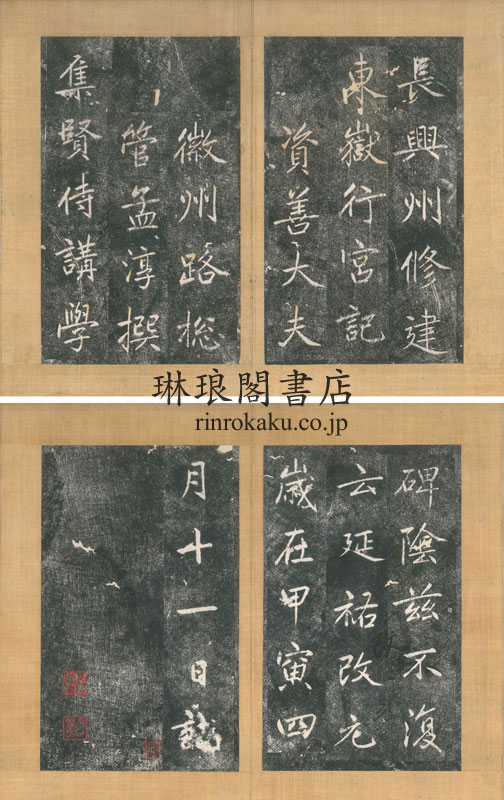 長興州修建
東嶽行宮記
資善大夫
徽州路総
管孟淳撰
集賢侍講學
琳琅閣書店
rinrokaku.co.jp
碑陰兹不復
云延祐改元
歳在甲寅四
月十一日